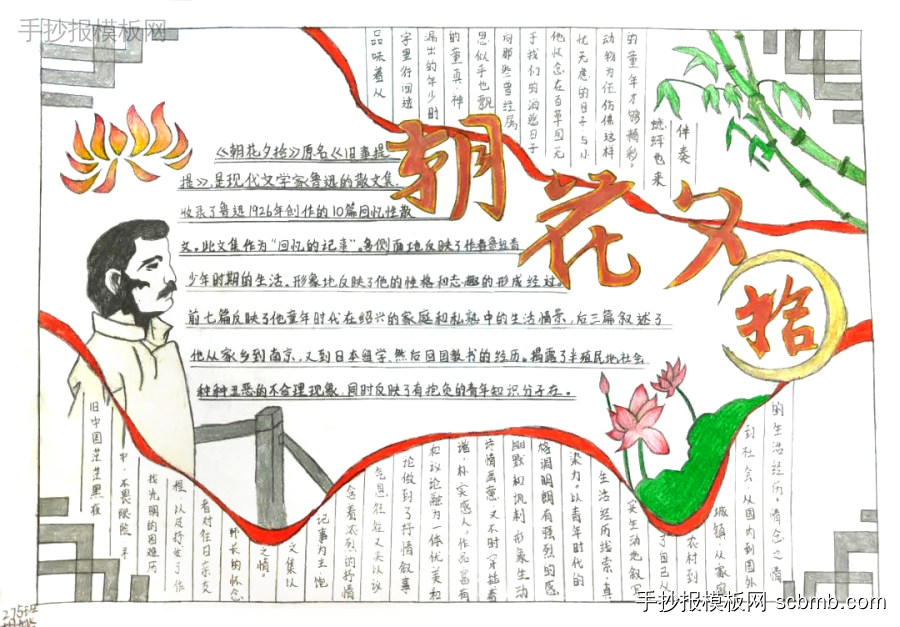 手抄报模板网
朝花夕拾
《朝花夕拾》原名《旧事提
提》,是现代文学家鲁迅的散文集,
收录了鲁迅1926年创作的10篇回忆性散
文。此文集作为“回忆的记事”,多侧面地反映了作者鲁迅青
少年时期的生活。形象地反映了他的性格和志趣的形成经过。
前七篇反映了他童年时代在绍兴的家庭和私塾中的生活情景,后三篇叙述了
他从家乡到南京,又到日本留学,然后回国教书的经历。揭露了半殖民地社会
种种丑恶的不合理现象,同时反映了有抱负的青年知识分子在。
旧中国茫茫黑夜
中,不畏艰险,寻
找光明的困难历
程,以及抒发了作
者对往日亲友
师长的怀念
之情。
文集以
记事为主,饱
含着浓烈的抒情
气息,往往又夹以议
论,做到了抒情、叙事
和议论融为一体,优美和
谐,朴实感人。作品富有
诗情画意,又不时穿插着
幽默和讽刺,形象生动
格调明朗,有强烈的感
染力。以青年时代的
生活经历线索,真
实生动地叙写
了自己从
农村到
城镇,从家庭
到社会,从国内到国外
的生活经历。情念之情
伴奏
蟋蟀也来
的童年才够精彩。
动物为伍,仿佛这样
忧无虑的日子,与小
他怀念在百草园无
于我们的消愁日子
向那些曾经属
思似乎也飘
的童真,神
漏出的年少时
字里行间透
品味着从
275班
手抄报模板网 scbmb.com